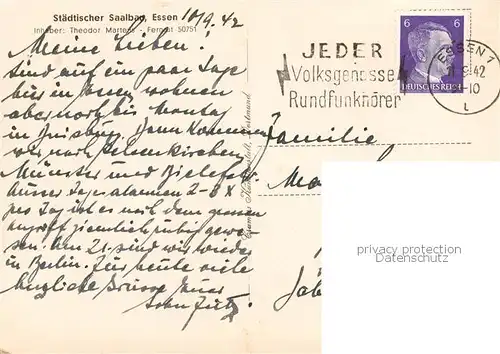 Städtischer Saalbau, Essen
Inhaber: Theodor Martens - Fernruf 50751
10/9.42
Meine Lieben!
Sind auf ein paar Tage
hier in Essen, wohnen
aber noch bis Montag
in Duisburg. Dann kommen
wir nach Gelsenkirchen,
Münster und Bielefeld.
Ausser Tagesalarmen 2-3 X
pro Tag ist es nach dem grossen
Angriff ziemlich ruhig gewe-
sen. Am 21. sind wir wieder
in Berlin. Für heute viele
herzliche Grüsse Euer
Sohn Fritz.
JEDER
Volksgenosse
Rundfunkhörer
6 6
DEUTSCHES REICH
ESSEN 1
11.9.42
-10
l
Familie
Ma
privacy protection
www.ansichtskarten-center.de